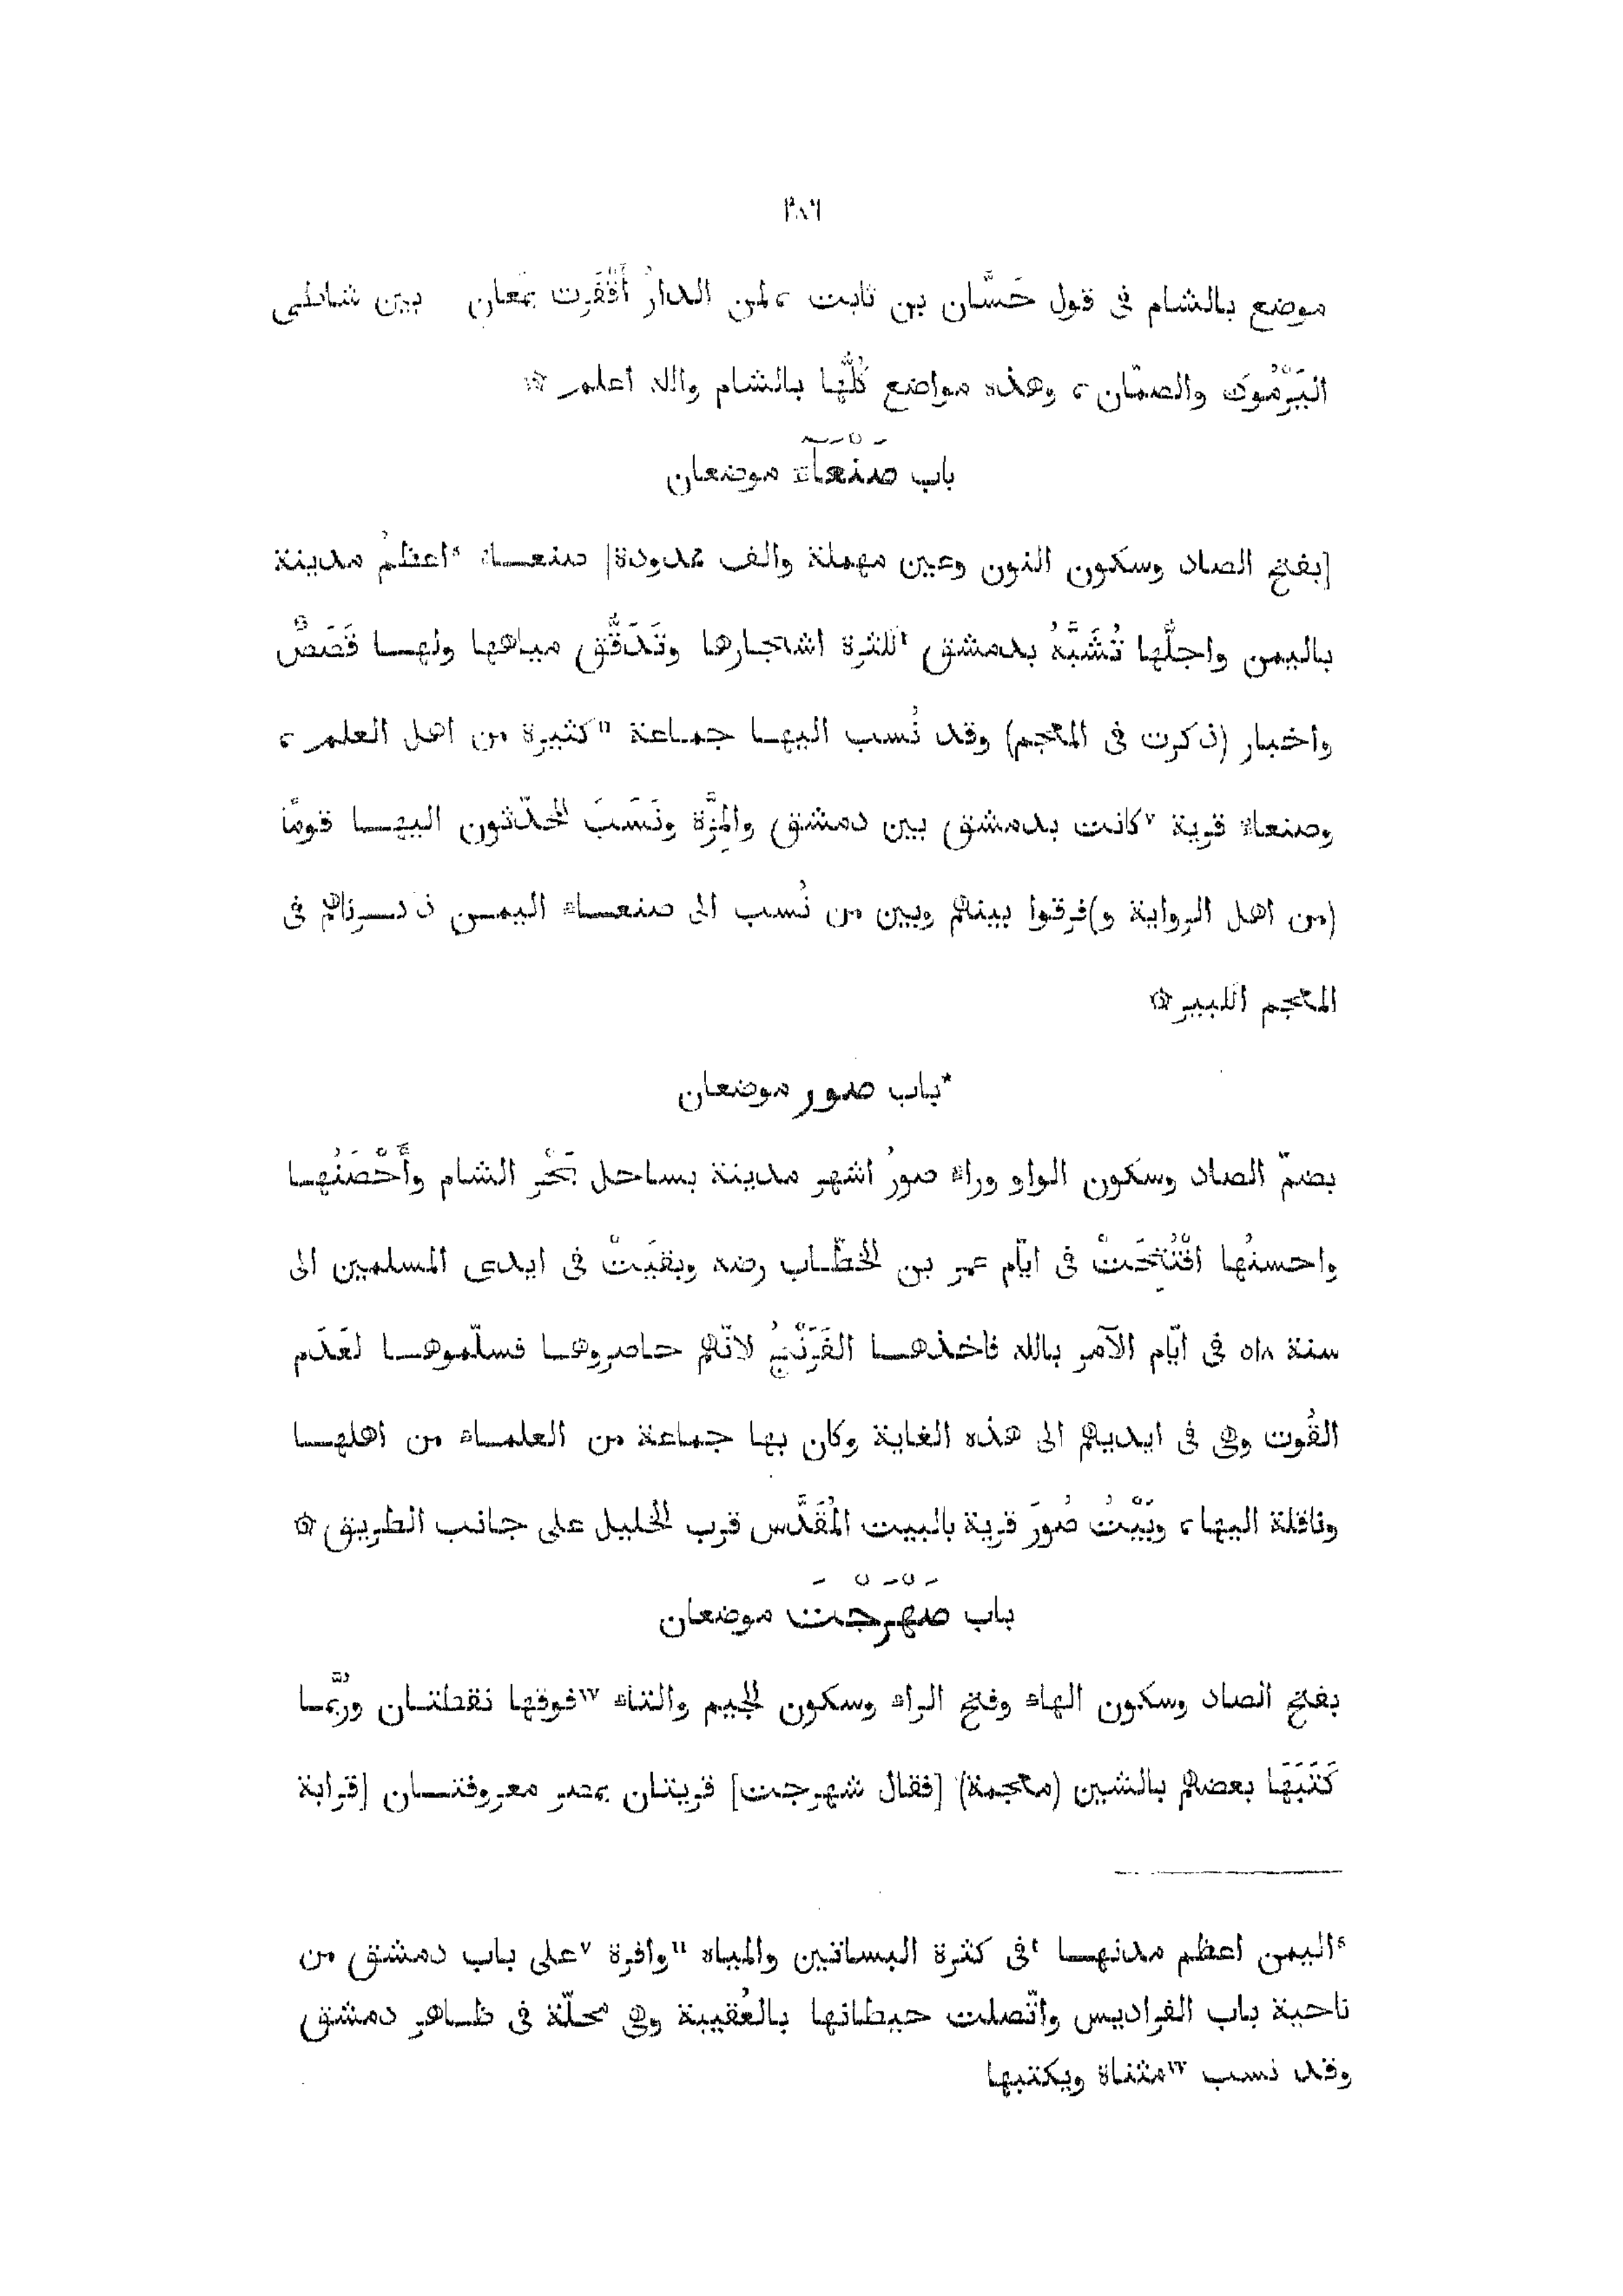 ٢٨٦
موضع بالشام فى قول حَسَّان بن ثابت، لمن الدارُ أَقْفَرت بمَعان بين شاطى
اليَرْمُوك والصمّان، وهذه مواضع كُلُّها بالشام والله اعلم ۞
باب صَنْعَآء موضعان
[بفتح الصاد وسكون النون وعين مهملة والف ممدودة] صنعاء ⁵اعظمُ مدينة
باليمن واجلُّها تُشَبَّهُ بدمشق ⁶لكثرة اشجارها وتَدَفُّق مياهها ولها قَصَصٌ
واخبار (ذكرت فى المعجم) وقد نُسب اليها جماعة ᵘكثيرة من اهل العلم،
وصنعاء قرية ᵛكانت بدمشق بين دمشق والمِزَّة ونَسَبَ المحدّثون اليها قومًا
(من اهل الرواية و)فرقوا بينهم وبين من نُسب الى صنعاء اليمن ذكرناهم فى
المعجم الكبير ۞
*باب صور موضعان
بضمّ الصاد وسكون الواو وراء صورُ اشهر مدينة بساحل بَحْر الشام وأَحْصَنُها
واحسنُها افْتُتِحَتْ فى ايّام عمر بن الخطّاب رضه وبقيَتْ فى ايدى المسلمين الى
سنة ٥١٨ فى ايّام الآمر بالله فاخذها الفَرَنْجُ لانّهم حاصروها فسلّموها لعَدَم
القُوت وهى فى ايديهم الى هذه الغاية وكان بها جماعة من العلماء من اهلها
وناقلة اليها، وبَيْتُ صُورَ قرية بالبيت المُقَدَّس قرب الخليل على جانب الطريق ۞
باب صَهْرَجْتَ موضعان
بفتح الصاد وسكون الهاء وفتح الراء وسكون الجيم والتاء ʷفوقها نقطتان ورُبَّما
كَتَبَهَا بعضهم بالشين (معجمة) [فقال شهرجت] قريتان بمصر معروفتان [قرابة
⁵اليمن اعظم مدنها ⁶فى كثرة البساتين والمياه ᵘوافرة ᵛعلى باب دمشق من
ناحية باب الفراديس واتّصلت حيطانها بالعُقيبة وهى محلّة فى ظاهر دمشق
وقد نسب ʷمثناة ويكتبها